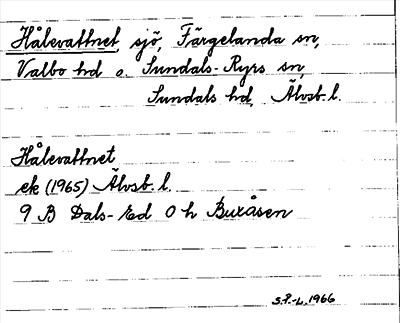 Hålevattnet, sjö, Färgelanda sn,
Valbo hd o. Sundals-Ryrs sn,
Sundals hd, Älvsb. l.
Hålevattnet
ek (1965) Älvsb. l.
9 B Dals-Ed 0 h Buxåsen
S.P.-L. 1966